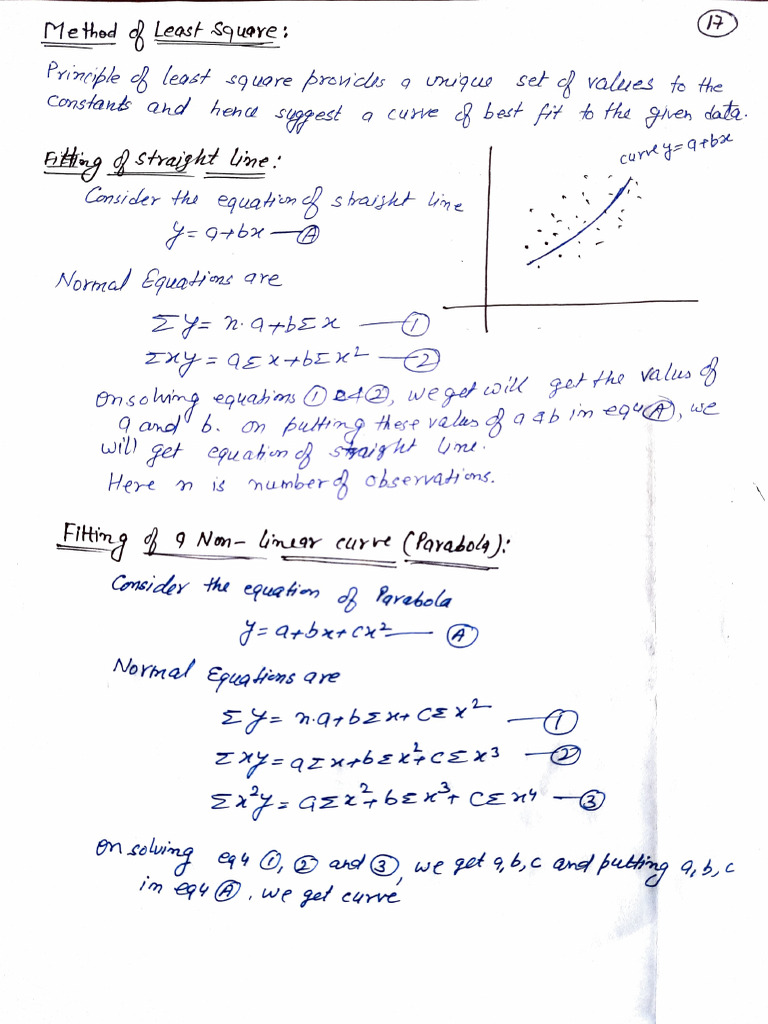 17
Method of Least Square:
Principle of least square provides a unique set of values to the
constants and hence suggest a curve of best fit to the given data.
curve y=a+bx
Fitting of straight line:
Consider the equation of straight line
y=a+bx —Ⓐ
Normal Equations are
Σy= n.a+bΣx —①
Σxy=aΣx+bΣx² —②
on solving equations ① & ②, we get will get the value of
a and b. on putting these values of a & b in eqⁿ Ⓐ, we
will get equation of straight line.
Here n is number of observations.
Fitting of a Non-linear curve (Parabola):
Consider the equation of Parabola
y=a+bx+cx² —Ⓐ
Normal Equations are
Σy= n.a+bΣx+cΣx² —①
Σxy=aΣx+bΣx²+cΣx³ —②
Σx²y=aΣx²+bΣx³+cΣx⁴ —③
on solving eqⁿ ①, ② and ③, we get a,b,c and putting a,b,c
in eqⁿ Ⓐ, we get curve